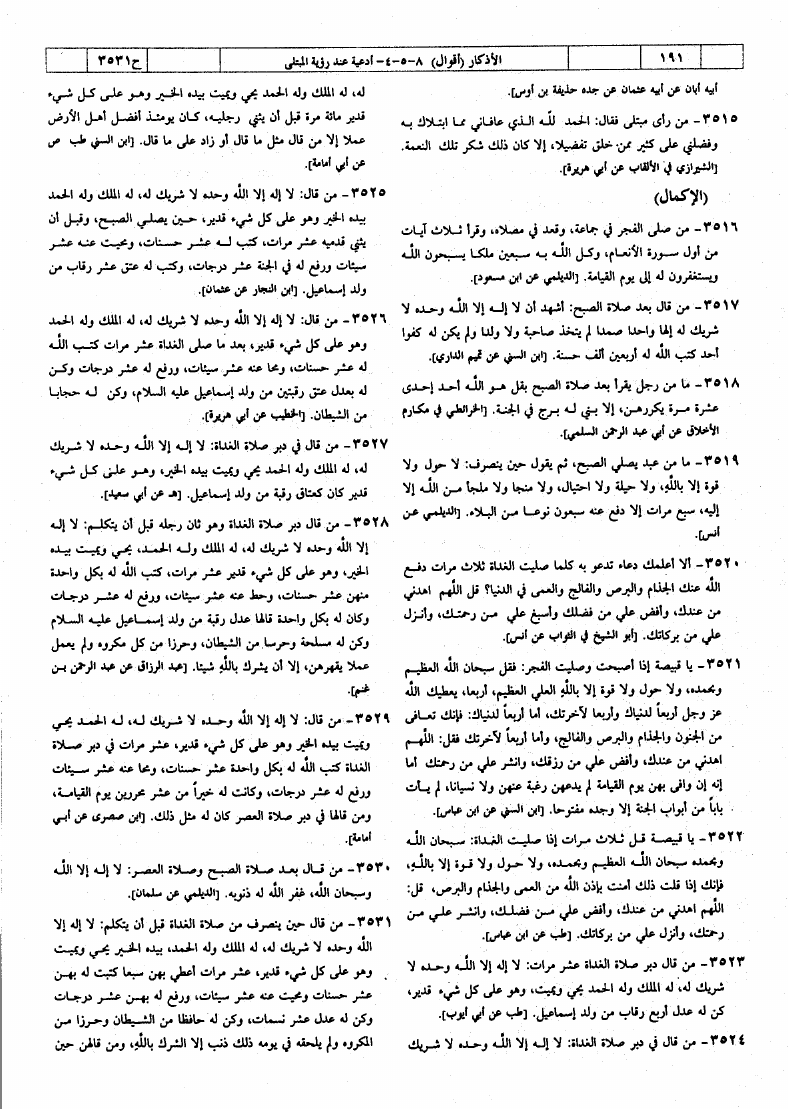 ١٩١
الأذكار (أقوال) ٨-٥-٤- أدعية عند رؤية المبتلى
ح٣٥٣١
أبيه أبان عن أبيه عثمان عن جده حذيفة بن أوس].
٣٥١٥- من رأى مبتلى فقال: الحمد لله الذي عافاني مما ابتلاك به
وفضلني على كثير ممن خلق تفضيلا، إلا كان ذلك شكر تلك النعمة.
[الشيرازي في الألقاب عن أبي هريرة].
(الإكمال)
٣٥١٦- من صلى الفجر في جماعة، وقعد في مصلاه، وقرأ ثلاث آيات
من أول سورة الأنعام، وكل الله به سبعين ملكا يسبحون الله
ويستغفرون له إلى يوم القيامة. [الديلمي عن ابن مسعود].
٣٥١٧- من قال بعد صلاة الصبح: أشهد أن لا إله إلا الله وحده لا
شريك له إلها واحدا صمدا لم يتخذ صاحبة ولا ولدا ولم يكن له كفوا
أحد كتب الله له أربعين ألف حسنة. [ابن السني عن تميم الداري].
٣٥١٨- ما من رجل يقرأ بعد صلاة الصبح بقل هو الله أحد إحدى
عشرة مرة يكررهن، إلا بني له برج في الجنة. [الخرائطي في مكارم
الأخلاق عن أبي عبد الرحمن السلمي].
٣٥١٩- ما من عبد يصلي الصبح، ثم يقول حين ينصرف: لا حول ولا
قوة إلا بالله، ولا حيلة ولا احتيال، ولا منجا ولا ملجأ من الله إلا
إليه، سبع مرات إلا دفع عنه سبعون نوعا من البلاء. [الديلمي عن
أنس].
٣٥٢٠- ألا أعلمك دعاء تدعو به كلما صليت الغداة ثلاث مرات دفع
الله عنك الجذام والبرص والفالج والعمى في الدنيا؟ قل اللهم اهدني
من عندك، وأفض علي من فضلك وأسبغ علي من رحمتك، وأنزل
علي من بركاتك. [أبو الشيخ في الثواب عن أنس].
٣٥٢١- يا قبيصة إذا أصبحت وصليت الفجر: فقل سبحان الله العظيم
وبحمده، ولا حول ولا قوة إلا بالله العلي العظيم، أربعا، يعطيك الله
عز وجل أربعاً لدنياك وأربعا لآخرتك، أما أربعاً لدنياك: فإنك تعافى
من الجنون والجذام والبرص والفالج، وأما أربعاً لآخرتك فقل: اللهم
اهدني من عندك، وأفض علي من رزقك، وانشر علي من رحمتك أما
إنه إن وافى بهن يوم القيامة لم يدعهن رغبة عنهن ولا نسيانا، لم يأت
باباً من أبواب الجنة إلا وجده مفتوحا. [ابن السني عن ابن عباس].
٣٥٢٢- يا قبيصة قل ثلاث مرات إذا صليت الغداة: سبحان الله
وبحمده سبحان الله العظيم وبحمده، ولا حول ولا قوة إلا بالله،
فإنك إذا قلت ذلك أمنت بإذن الله من العمى والجذام والبرص، قل:
اللهم اهدني من عندك، وأفض علي من فضلك، وانشر علي من
رحمتك، وأنزل علي من بركاتك. [طب عن ابن عباس].
٣٥٢٣- من قال دبر صلاة الغداة عشر مرات: لا إله إلا الله وحده لا
شريك له، له الملك وله الحمد يحي ويميت، وهو على كل شيء قدير،
كن له عدل أربع رقاب من ولد إسماعيل. [طب عن أبي أيوب].
٣٥٢٤- من قال في دبر صلاة الغداة: لا إله إلا الله وحده لا شريك
له، له الملك وله الحمد يحي ويميت بيده الخير وهو على كل شيء
قدير مائة مرة قبل أن يثني رجليه، كان يومئذ أفضل أهل الأرض
عملا إلا من قال مثل ما قال أو زاد على ما قال. [ابن السني طب ص
عن أبي أمامة].
٣٥٢٥- من قال: لا إله إلا الله وحده لا شريك له، له الملك وله الحمد
بيده الخير وهو على كل شيء قدير، حين يصلي الصبح، وقبل أن
يثني قدميه عشر مرات، كتب له عشر حسنات، ومحيت عنه عشر
سيئات ورفع له في الجنة عشر درجات، وكتب له عتق عشر رقاب من
ولد إسماعيل. [ابن النجار عن عثمان].
٣٥٢٦- من قال: لا إله إلا الله وحده لا شريك له، له الملك وله الحمد
وهو على كل شيء قدير، بعد ما صلى الغداة عشر مرات كتب الله
له عشر حسنات، ومحا عنه عشر سيئات، ورفع له عشر درجات وكن
له بعدل عتق رقبتين من ولد إسماعيل عليه السلام، وكن له حجابا
من الشيطان. [الخطيب عن أبي هريرة].
٣٥٢٧- من قال في دبر صلاة الغداة: لا إله إلا الله وحده لا شريك
له، له الملك وله الحمد يحي ويميت بيده الخير، وهو على كل شيء
قدير كان كعتاق رقبة من ولد إسماعيل. [هـ عن أبي سعيد].
٣٥٢٨- من قال دبر صلاة الغداة وهو ثان رجله قبل أن يتكلم: لا إله
إلا الله وحده لا شريك له، له الملك وله الحمد، يحي ويميت بيده
الخير، وهو على كل شيء قدير عشر مرات، كتب الله له بكل واحدة
منهن عشر حسنات، وحط عنه عشر سيئات، ورفع له عشر درجات
وكان له بكل واحدة قالها عدل رقبة من ولد إسماعيل عليه السلام
وكن له مسلحة وحرسا من الشيطان، وحرزا من كل مكروه ولم يعمل
عملا يقهرهن، إلا أن يشرك بالله شيئا. [عبد الرزاق عن عبد الرحمن بن
غنم].
٣٥٢٩- من قال: لا إله إلا الله وحده لا شريك له، له الحمد يحي
ويميت بيده الخير وهو على كل شيء قدير، عشر مرات في دبر صلاة
الغداة كتب الله له بكل واحدة عشر حسنات، ومحا عنه عشر سيئات
ورفع له عشر درجات، وكانت له خيراً من عشر محررين يوم القيامة،
ومن قالها في دبر صلاة العصر كان له مثل ذلك. [ابن صصرى عن أبي
أمامة].
٣٥٣٠- من قال بعد صلاة الصبح وصلاة العصر: لا إله إلا الله
وسبحان الله، غفر الله له ذنوبه. [الديلمي عن سلمان].
٣٥٣١- من قال حين ينصرف من صلاة الغداة قبل أن يتكلم: لا إله إلا
الله وحده لا شريك له، له الملك وله الحمد، بيده الخير يحي ويميت
وهو على كل شيء قدير، عشر مرات أعطي بهن سبعا كتبت له بهن
عشر حسنات ومحيت عنه عشر سيئات، ورفع له بهن عشر درجات
وكن له عدل عشر نسمات، وكن له حافظا من الشيطان وحرزا من
المكروه ولم يلحقه في يومه ذلك ذنب إلا الشرك بالله، ومن قالهن حين